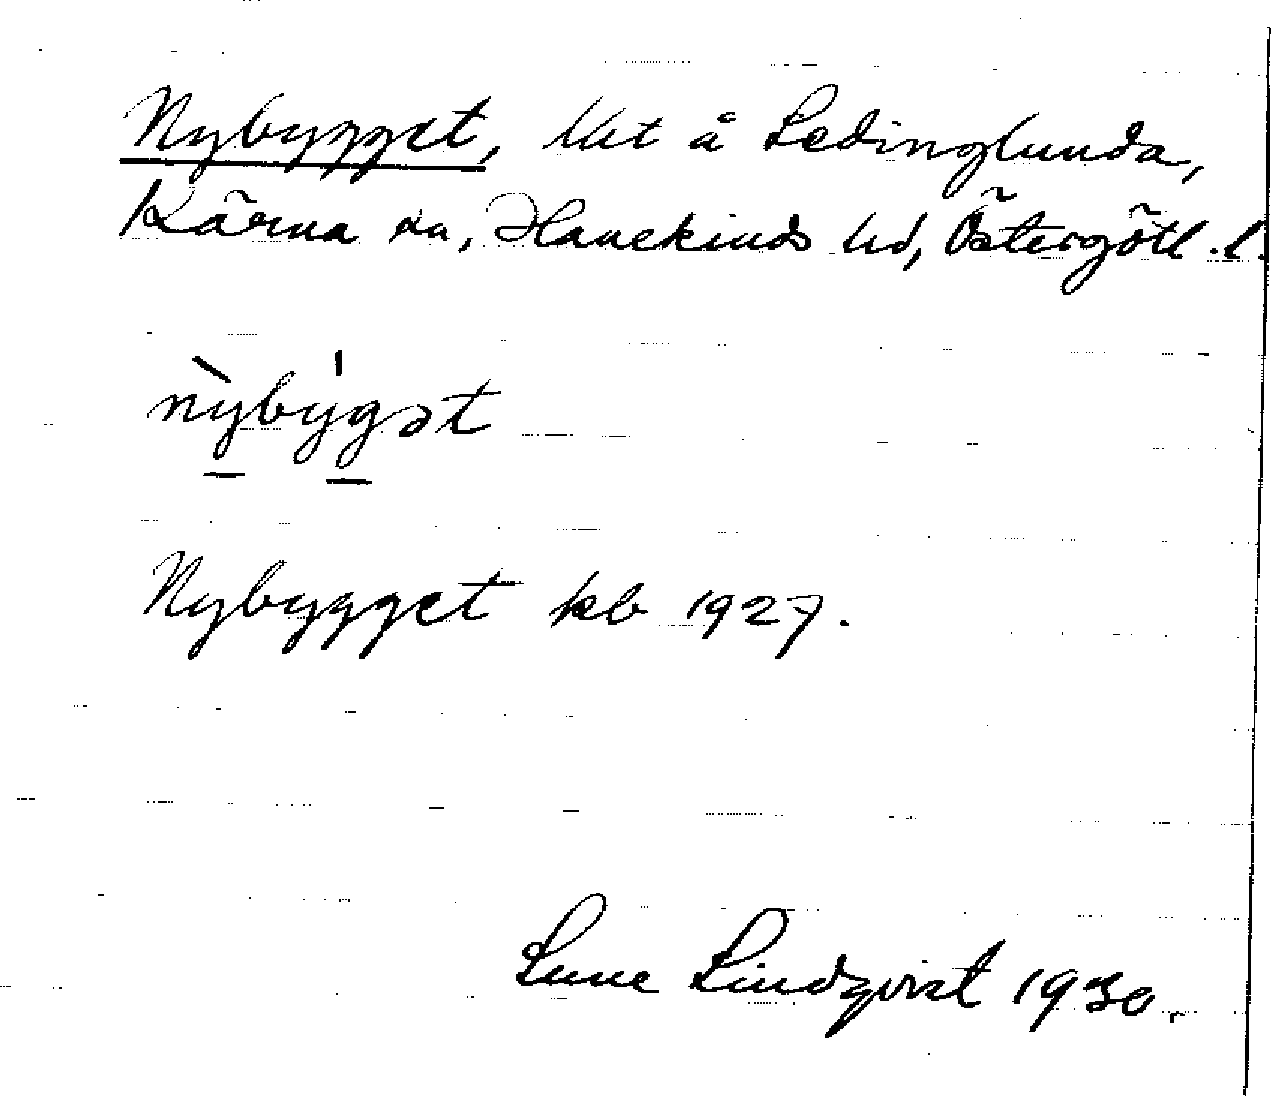 Nybygget, lht å Ledinglunda,
Kärna sn, Hanekinds hd, Östergötl. l.
nỳbýgət
Nybygget kb 1927.
Sune Lindqvist 1930.